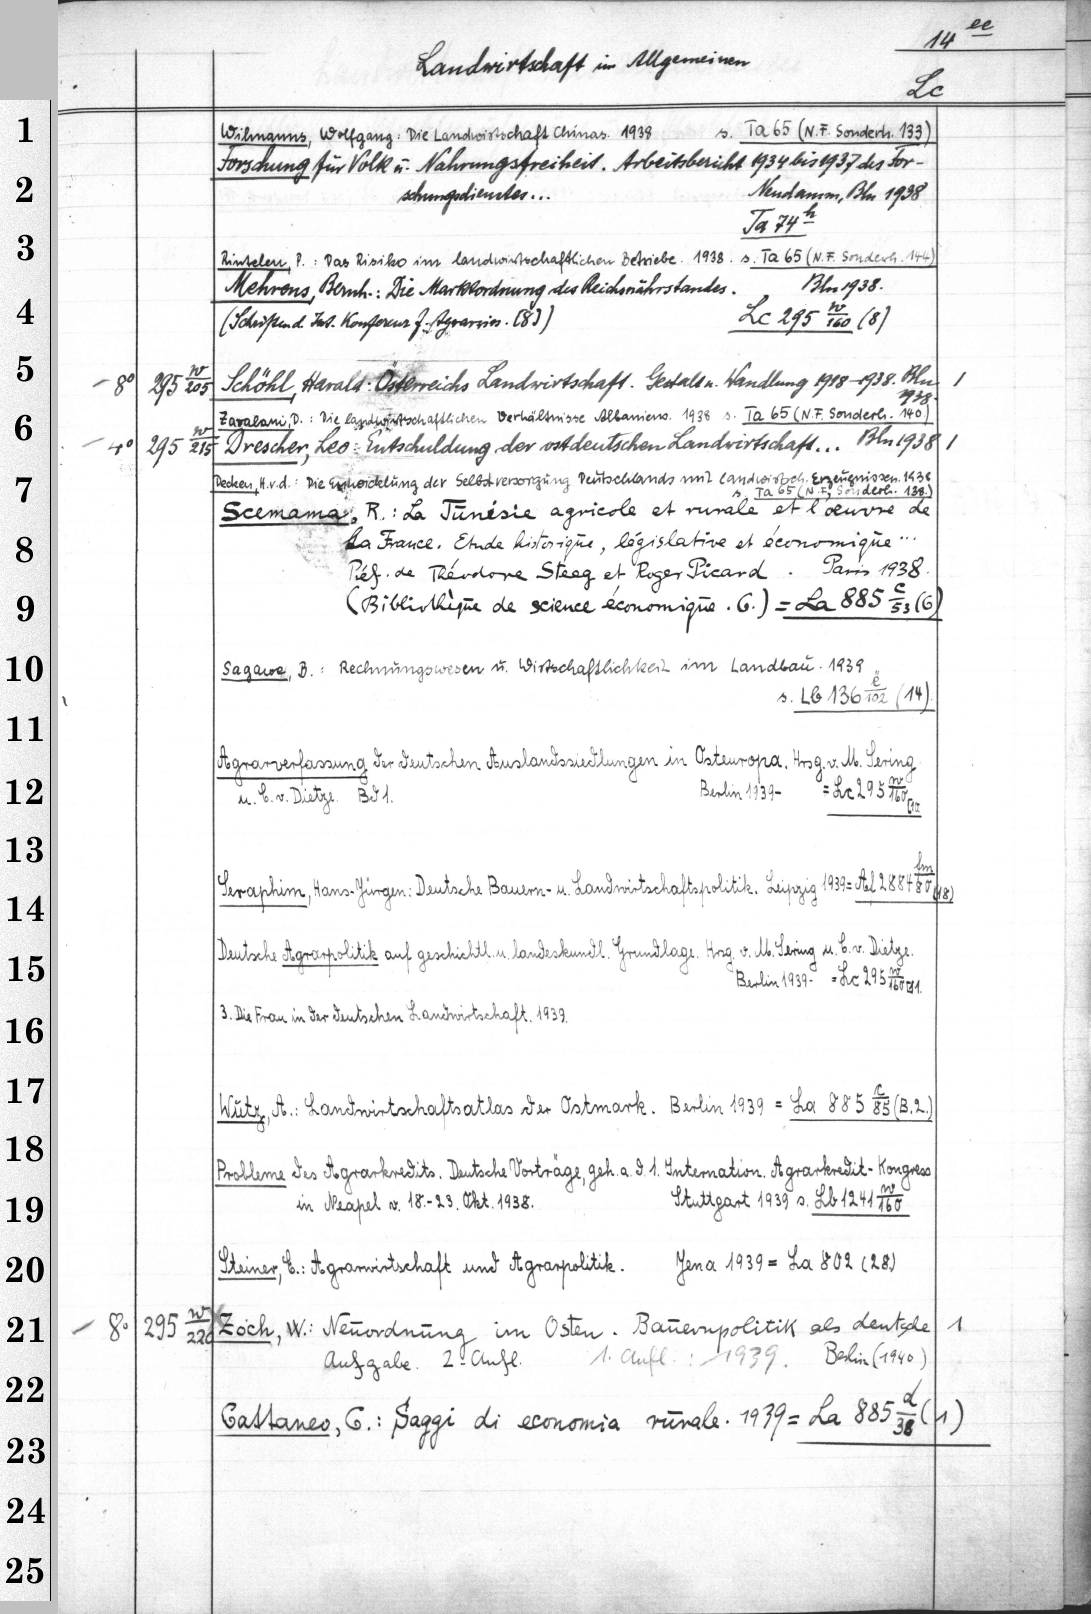 14 ee
Landwirtschaft im Allgemeinen
Lc
1
Wilmanns, Wolfgang: Die Landwirtschaft Chinas. 1938 s. Ta 65 (N.F. Sonderh. 133)
Forschung für Volk u. Nahrungsfreiheit. Arbeitsbericht 1934 bis 1937 des For-
2
schungsdienstes... Neudamm, Bln 1938
Ta 74 h
3
Rintelen, P.: Das Risiko im landwirtschaftlichen Betriebe. 1938. s. Ta 65 (N.F. Sonderh. 144)
Mehrens, Bernh.: Die Marktordnung des Reichsnährstandes. Bln 1938.
4
(Schriften d. Int. Konferenz f. Agrarwiss. [8]) Lc 295 w/160 (8)
5
– 8° 295 w/205 Schöhl, Harald: Österreichs Landwirtschaft. Gestalt u. Wandlung 1918–1938. Bln 1
1938.
6
Zavalani, D.: Die landwirtschaftlichen Verhältnisse Albaniens. 1938 s. Ta 65 (N.F. Sonderh. 140)
– 4° 295 w/215 Drescher, Leo: Entschuldung der ostdeutschen Landwirtschaft... Bln 1938 1
7
Decken, H.v.d.: Die Entwicklung der Selbstversorgung Deutschlands mit landwirtsch. Erzeugnissen. 1938
s. Ta 65 (N.F. Sonderh. 138.)
Scemama, R.: La Tunésie agricole et rurale et l'oeuvre de
8
la France. Etude historique, législative et économique...
Préf. de Théodore Steeg et Roger Picard. Paris 1938.
9
(Bibliothèque de science économique. 6.) = La 885 c/53 (6)
10
Sagawe, B.: Rechnungswesen u. Wirtschaftlichkeit im Landbau. 1939
s. Lb 136 ë/102 (14)
11
12
Agrarverfassung der deutschen Auslandssiedlungen in Osteuropa. Hrsg. v. M. Sering
u. C. v. Dietze. Bd 1. Berlin 1939- = Lc 295 w/160
13
14
Seraphim, Hans-Jürgen: Deutsche Bauern- u. Landwirtschaftspolitik. Leipzig 1939 = Al 2884 hm/80 (18)
15
Deutsche Agrarpolitik auf geschichtl. u. landeskundl. Grundlage. Hrsg. v. M. Sering u. C. v. Dietze.
Berlin 1939- = Lc 295 w/160
16
3. Die Frau in der deutschen Landwirtschaft. 1939.
17
Wutz, A.: Landwirtschaftsatlas der Ostmark. Berlin 1939 = La 885 c/85 (B.2.)
18
Probleme des Agrarkredits. Deutsche Vorträge, geh. a. d. 1. Internation. Agrarkredit-Kongress
19
in Neapel v. 18.-23. Okt. 1938. Stuttgart 1939 s. Lb 1241 w/160
20
Steiner, E.: Agrarwirtschaft und Agrarpolitik. Jena 1939 = La 802 (28)
21
– 8° 295 w/220 Zoch, W.: Neuordnung im Osten. Bauernpolitik als deutsche 1
Aufgabe. 2. Aufl. 1. Aufl.: 1939. Berlin (1940)
22
Cattaneo, C.: Saggi di economia rurale. 1939 = La 885 d/38 (1)
23
24
25